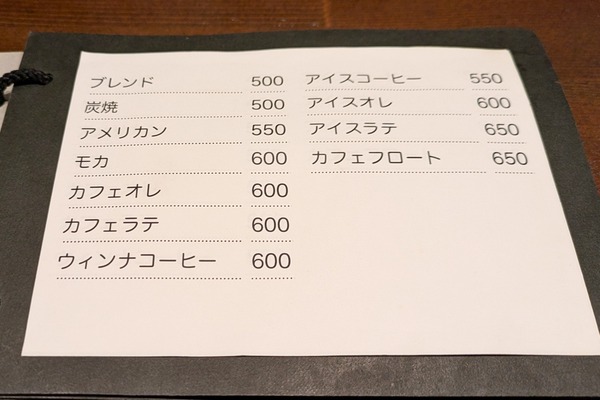 ブレンド 500
炭焼 500
アメリカン 550
モカ 600
カフェオレ 600
カフェラテ 600
ウィンナコーヒー 600
アイスコーヒー 550
アイスオレ 600
アイスラテ 650
カフェフロート 650